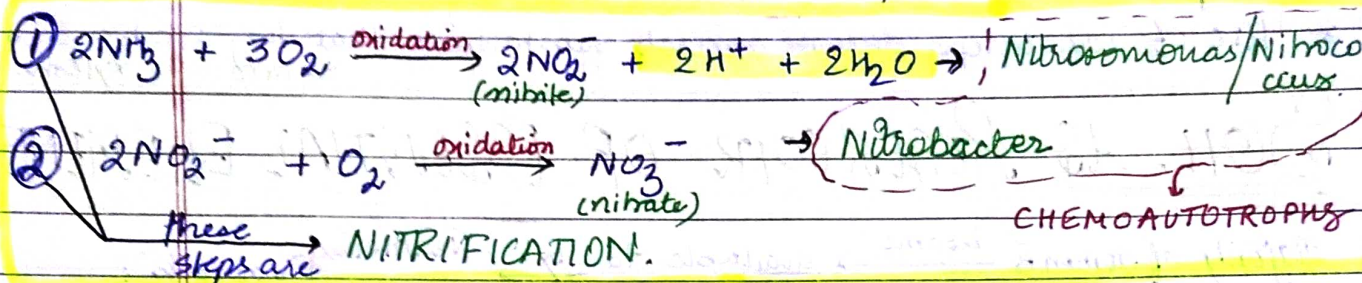 ① 2NH3 + 3O2 oxidation→ 2NO2- + 2H+ + 2H2O → Nitrosomonas/Nitroco
(nitrite) ccus.
② 2NO2- + O2 oxidation→ NO3- → Nitrobacter
(nitrate) CHEMOAUTOTROPHS
these
steps are → NITRIFICATION.